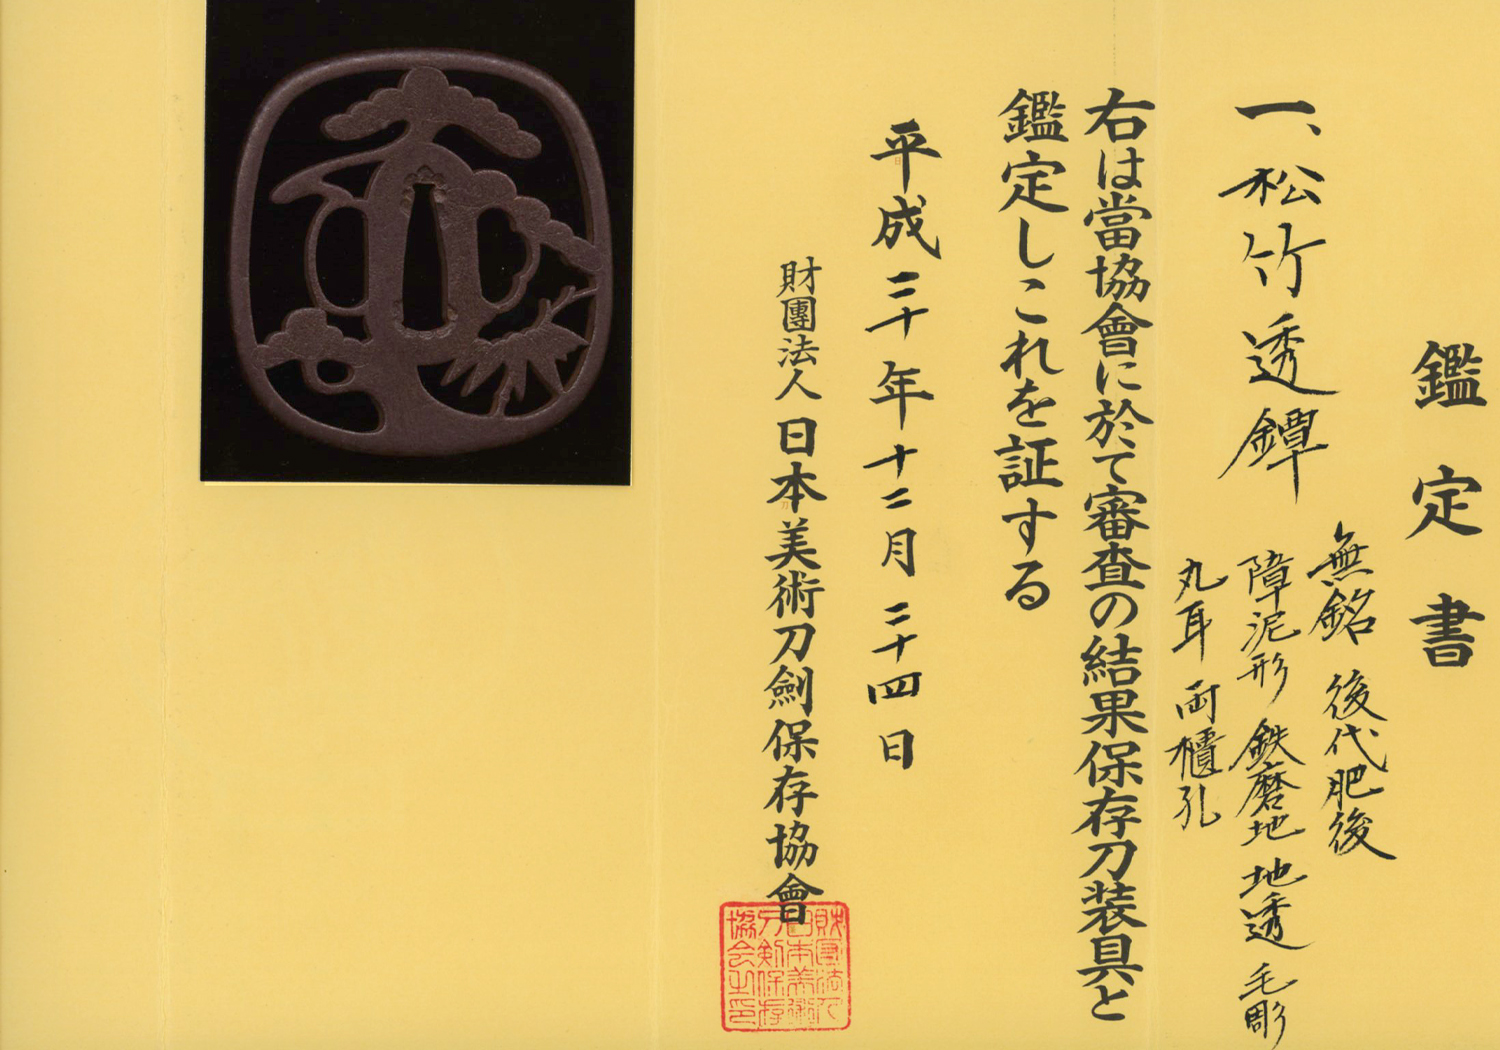 鑑定書
一、松竹透鐔
無銘 後代肥後
障泥形 鉄磨地 地透 毛彫
丸耳 両櫃孔
右は當協會に於て審査の結果保存刀装具と
鑑定しこれを証する
平成二十年十二月二十四日
財團法人日本美術刀劍保存協會
財団法人
日本美術
刀剣保存
協会之印